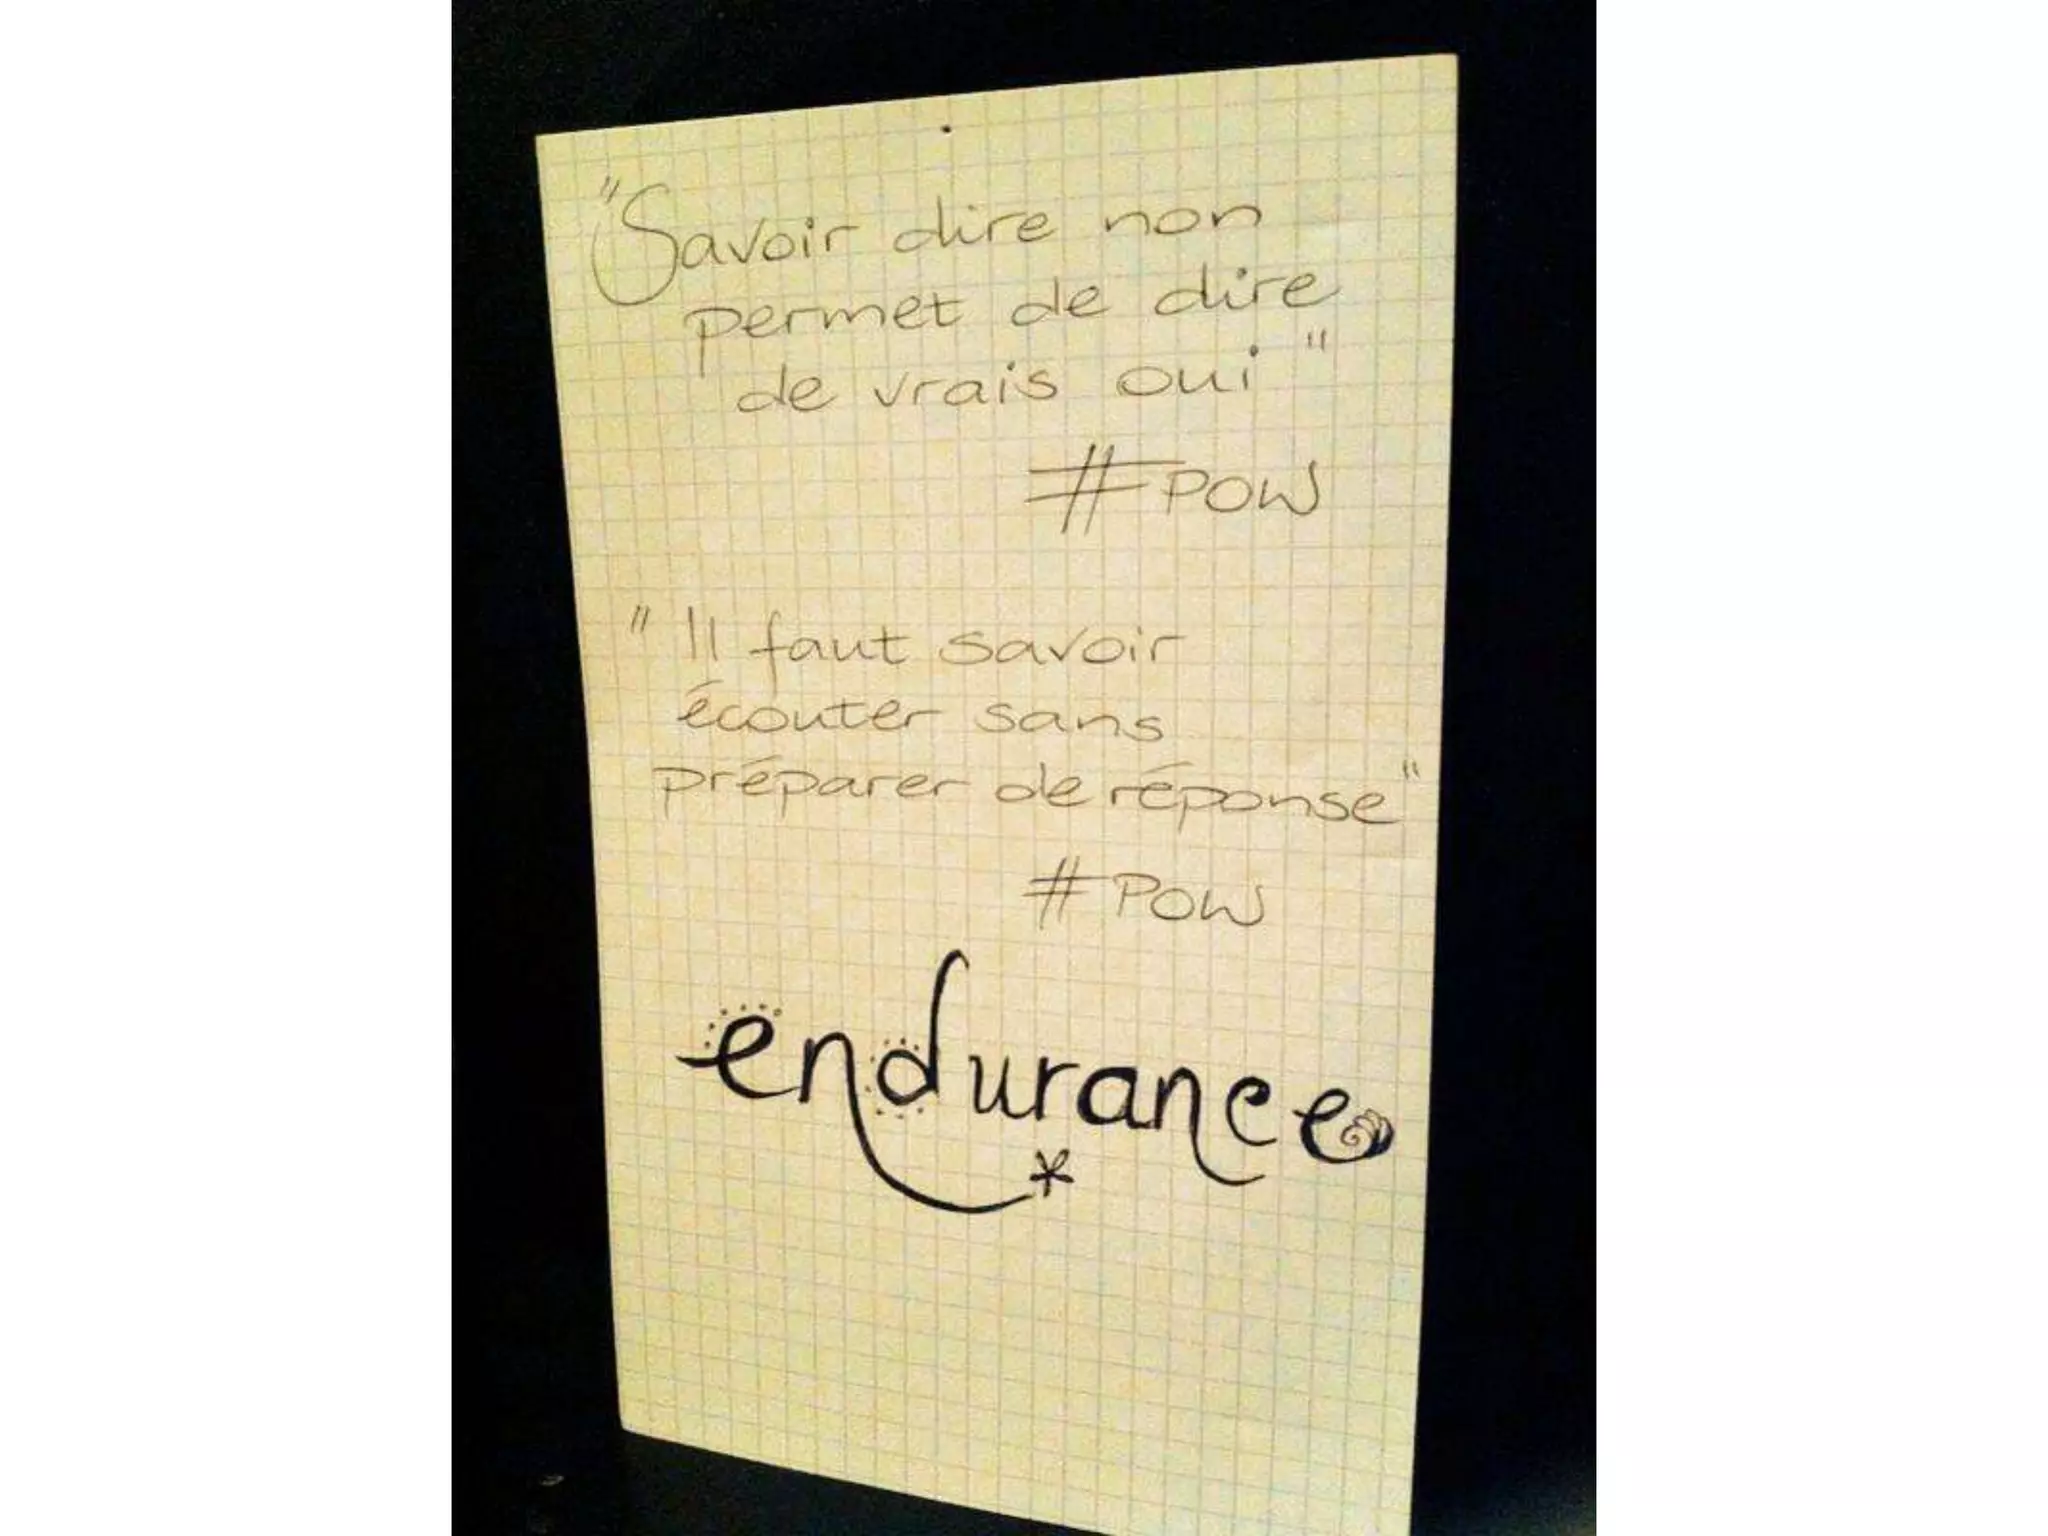 "Savoir dire non
permet de dire
de vrais oui"
#POW
"Il faut savoir
écouter sans
préparer de réponse"
#POW
endurance